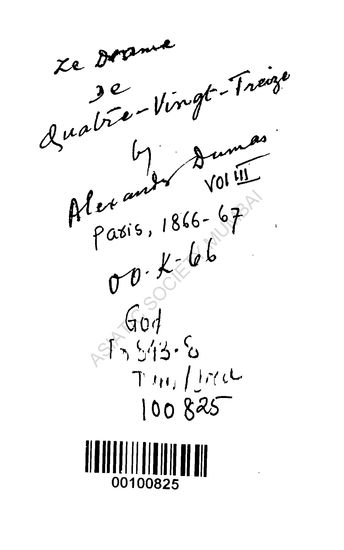 Le Drame
De
Quatre-Vingt-Treize
by
Alexandr Dumas
Vol III
Paris, 1866-67
OO-K-66
God
843.8
100825
00100825
ASIATIC SOCIETY MUMBAI